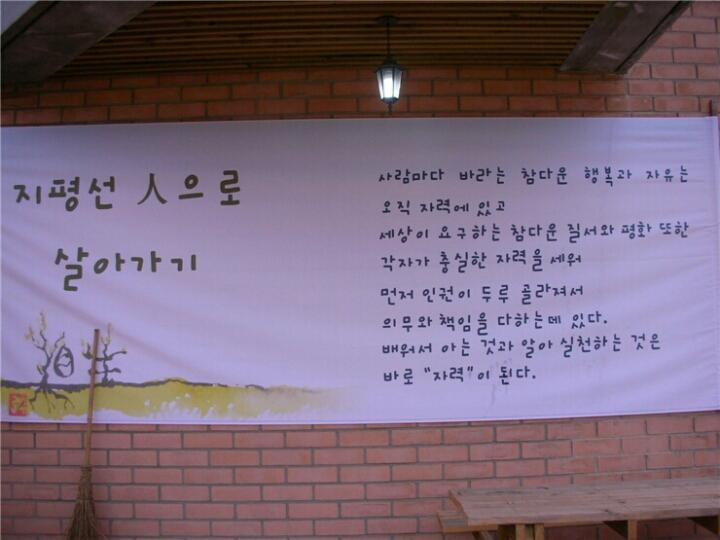 지평선 人으로
살아가기
사람마다 바라는 참다운 행복과 자유는
오직 자력에 있고
세상이 요구하는 참다운 질서와 평화 또한
각자가 충실한 자력을 세워
먼저 인권이 두루 골라져서
의무와 책임을 다하는데 있다.
배워서 아는 것과 알아 실천하는 것은
바로 "자력"이 된다.